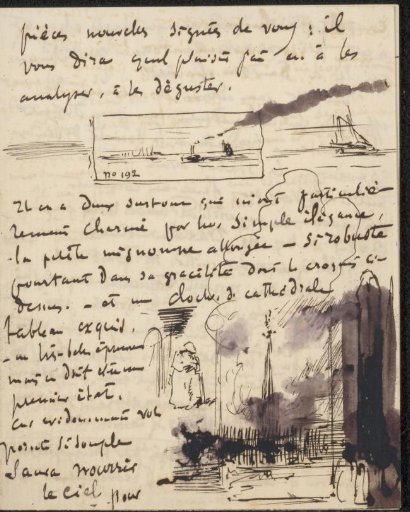 pièces nouvelles signées de vous ; il
vous dira quel plaisir j'ai eu à les
analyser, à les déguster.
no 192
Il en a deux surtout qui m'ont particuliè-
rement charmé par leur simple élégance,
la petite mignonne allongée – si robuste
pourtant dans sa gracilité dont le croquis ci-
dessus. – et un clocher de cathédrale
tableau exquis.
– un très-belle épreuve
mais ce doit être un
premier état.
car évidemment votre
pointe si souple
saura nourrir
le ciel pour